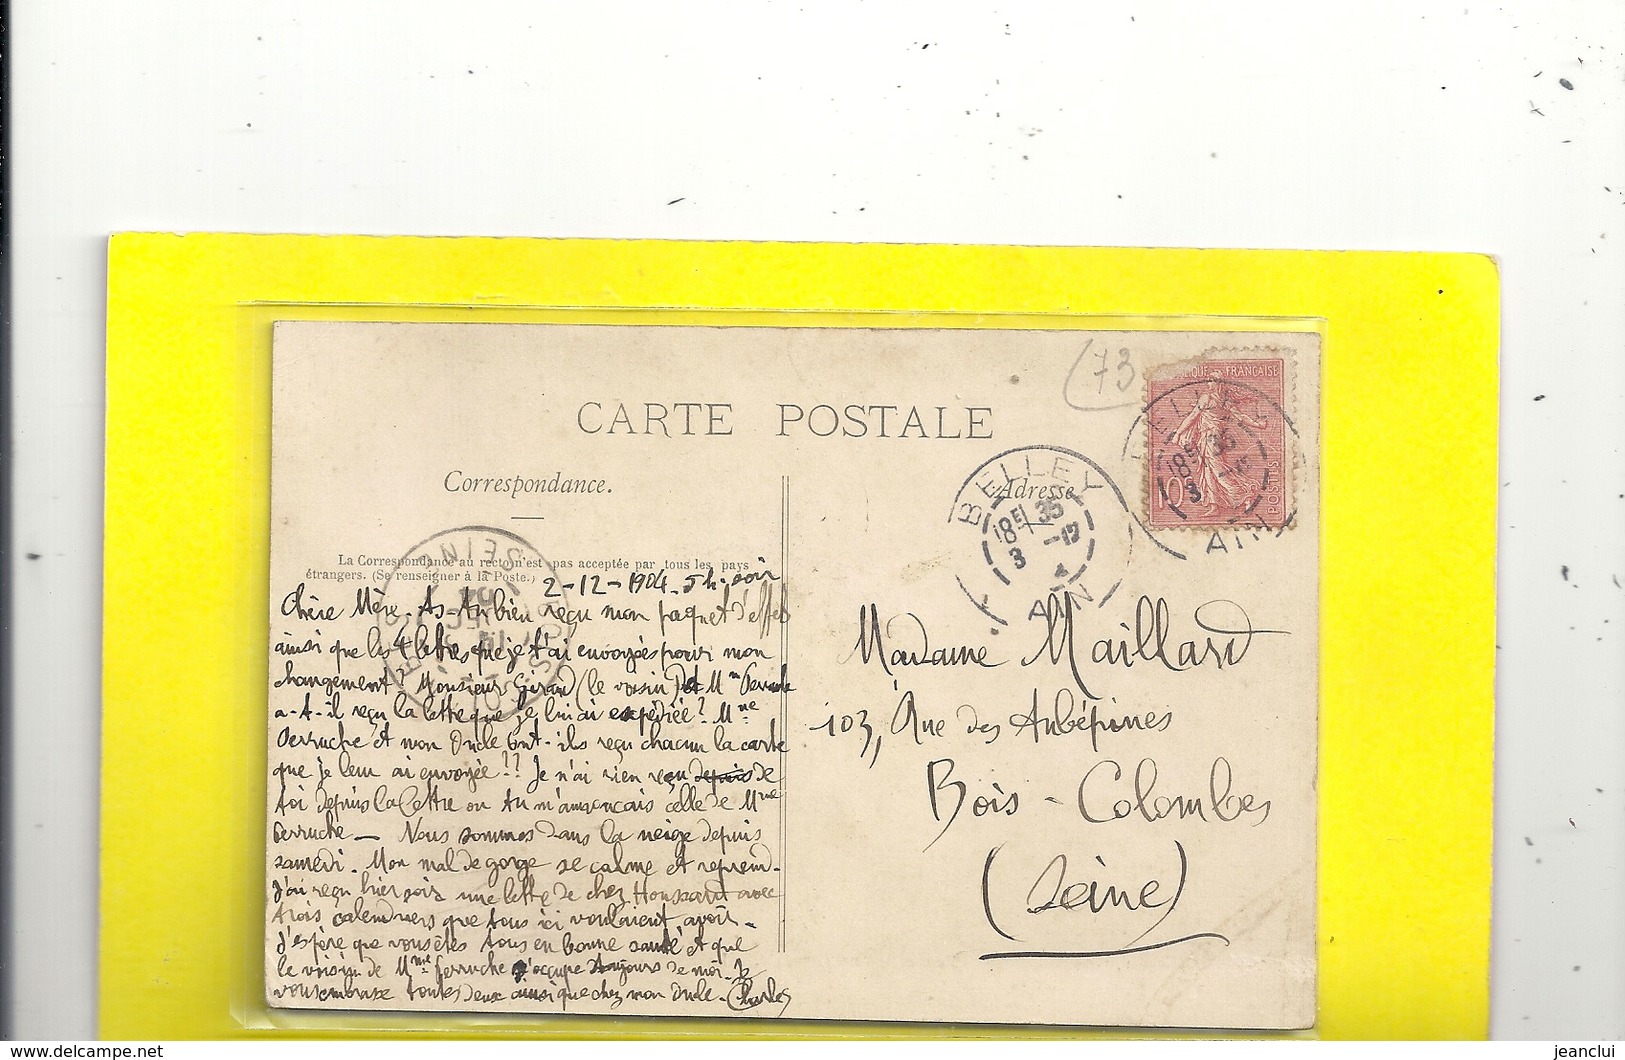 (73
RÉPUBLIQUE FRANÇAISE
10
POSTES
CARTE POSTALE
Correspondance.
Adresse
BELLEY
18 35
3 -12
AIN
BELLEY
18 35
3
AIN
SEINE
La Correspondance au recto n'est pas acceptée par tous les pays
étrangers. (Se renseigner à la Poste.)
2-12-1904. 5h. soir
Chère Mère. As-tu bien reçu mon paquet d'effets
ainsi que les 4 lettres que je t'ai envoyées pour mon
changement? Monsieur Girard (le voisin) de Mme Perruche
a-t-il reçu la lettre que je lui ai expédiée? Mme
Perruche et mon Oncle ont-ils reçu chacun la carte
que je leur ai envoyée?? Je n'ai rien reçu depuis de
toi depuis la lettre ou tu m'annonçais celle de Mme
Perruche — Nous sommes dans la neige depuis
samedi. Mon mal de gorge se calme et reprend.
J'ai reçu hier soir une lettre de chez Houssard avec
trois calendriers que tous ici voulaient avoir.
J'espère que vous êtes tous en bonne santé et que
le voisin de Mme Perruche s'occupe toujours de moi. Je
vous embrasse toutes deux ainsi que chez mon Oncle. Charles
Madame Maillard
103, Rue des Aubépines
Bois-Colombes
(Seine)
delcampe.net
jeanclui